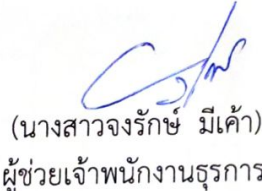 (นางสาวจงรักษ์ มีเค้า)
ผู้ช่วยเจ้าพนักงานธุรการ